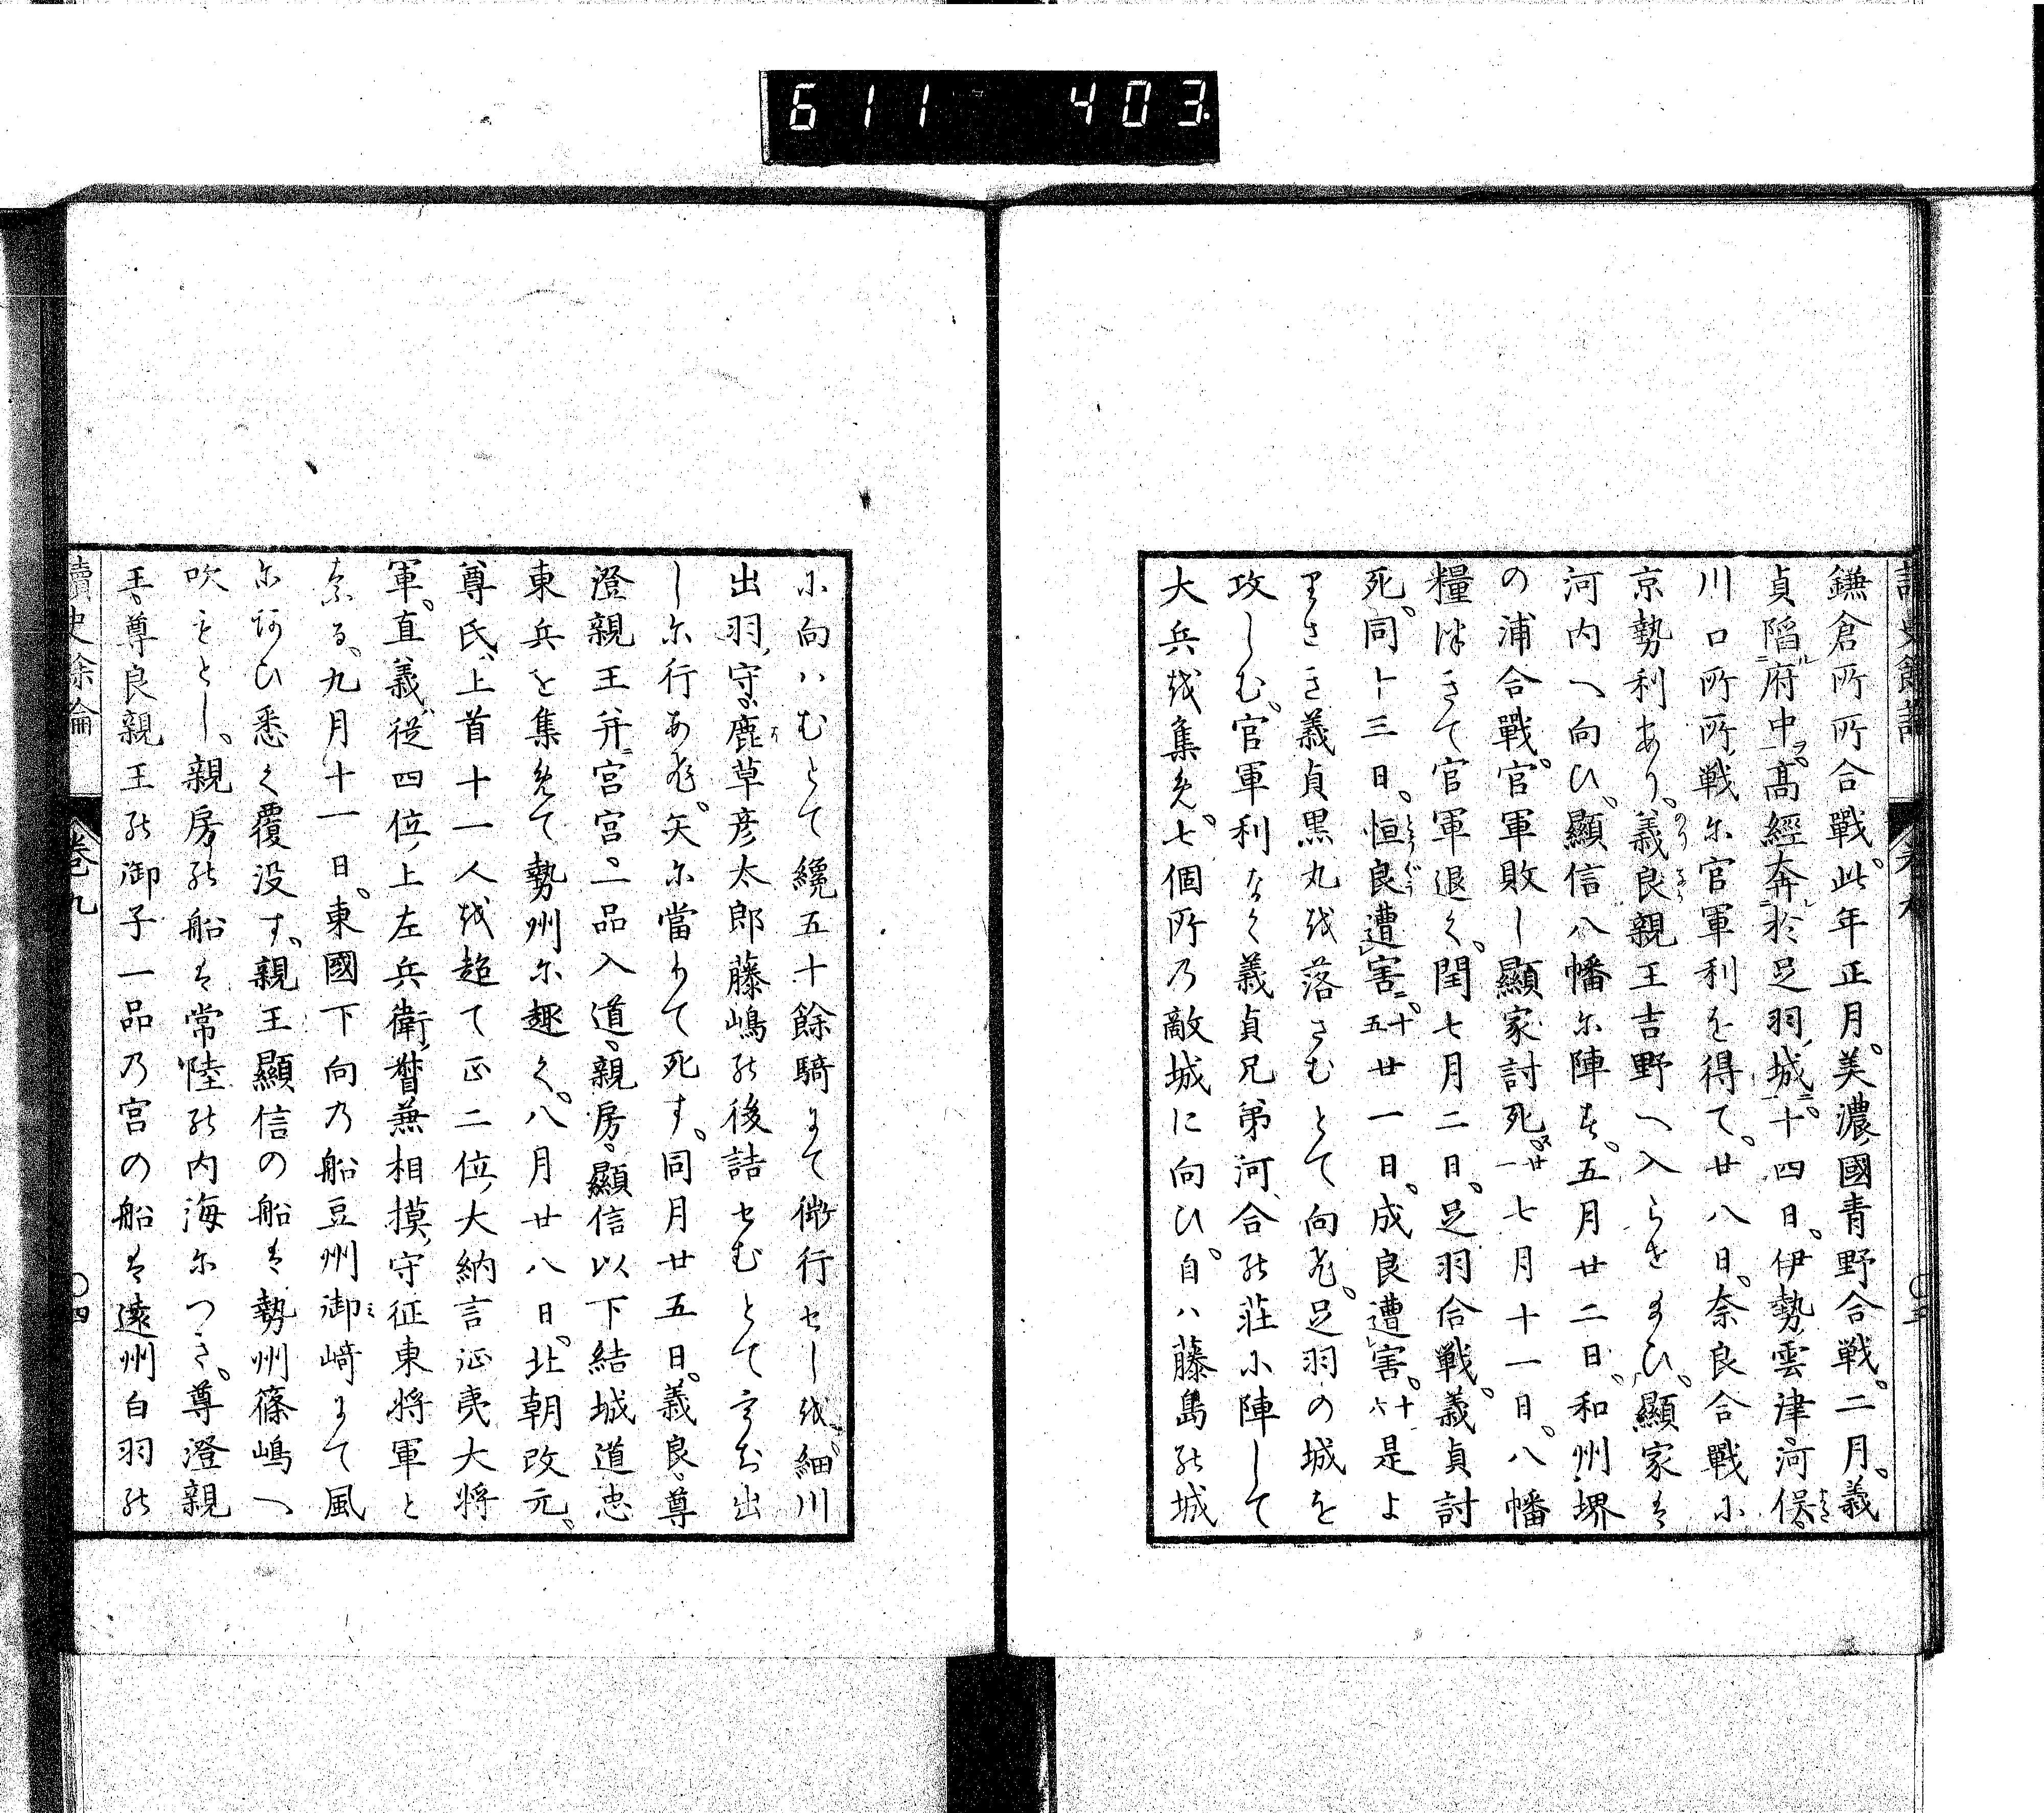 611 403
鎌倉所所合戰。此年正月。美濃國青野合戰。二月。義
貞陷府中。高經奔於足羽城。十四日。伊勢雲津河俣。
川口所所戰尓官軍利を得て。廿八日。奈良合戰小
京勢利あり。義良親王吉野へ入らせ給ひ。顯家は
河内へ向ひ。顯信八幡尓陣す。五月廿二日。和州堺
の浦合戰。官軍敗し顯家討死。廿一七月十一日。八幡
糧つきて官軍退く。閏七月二日。足羽合戰。義貞討
死。同十三日。恒良遭害。十五廿一日。成良遭害。十六是よ
りさき義貞黒丸越落さむとて向ふ。足羽の城を
攻しむ。官軍利なく義貞兄弟河合能荘小陣して
大兵越集免。七個所乃敵城に向ひ。自ハ藤島能城
小向ハむとて纔五十餘騎尓て微行せし越。細川
出羽守。鹿草彦太郎藤嶋能後詰せむとて 出
し尓行あふ。矢尓當りて死す。同月廿五日。義良。尊
澄親王并宮宮。二品入道。親房。顯信以下結城道忠
東兵を集免て勢州尓趣く。八月廿八日。北朝改元。
尊氏。上首十一人越超て正二位大納言征夷大將
軍。直義從四位上左兵衛督兼相摸守征東將軍と
奈る。九月十一日。東國下向乃船豆州御﨑尓て風
尓阿ひ悉く覆没す。親王顯信の船は勢州篠嶋へ
吹もとし。親房能船は常陸能内海尓つき。尊澄親
王。尊良親王能御子一品乃宮の船は遠州白羽能
讀史餘論 卷九 〇四